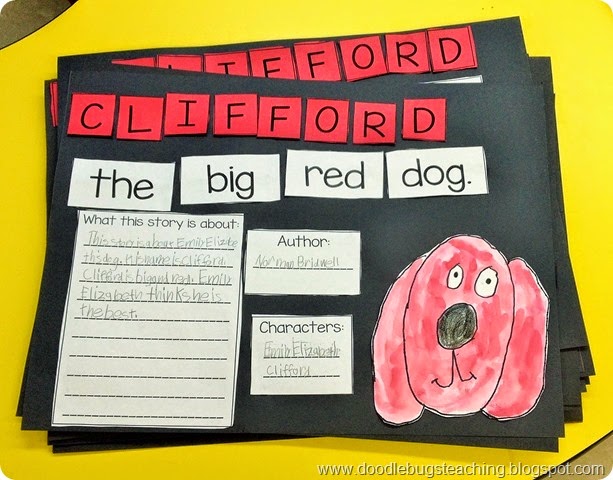 CLIFFORD
CLIFFORD
the big red dog.
What this story is about:
This story is about Emily Elizabe
this dog. His name is Clifford.
Clifford is big and red. Emily
Elizabeth thinks he is
the best.
Author:
Norman Bridwell
Characters:
Emily Elizabeth
Clifford
www.doodlebugsteaching.blogspot.com